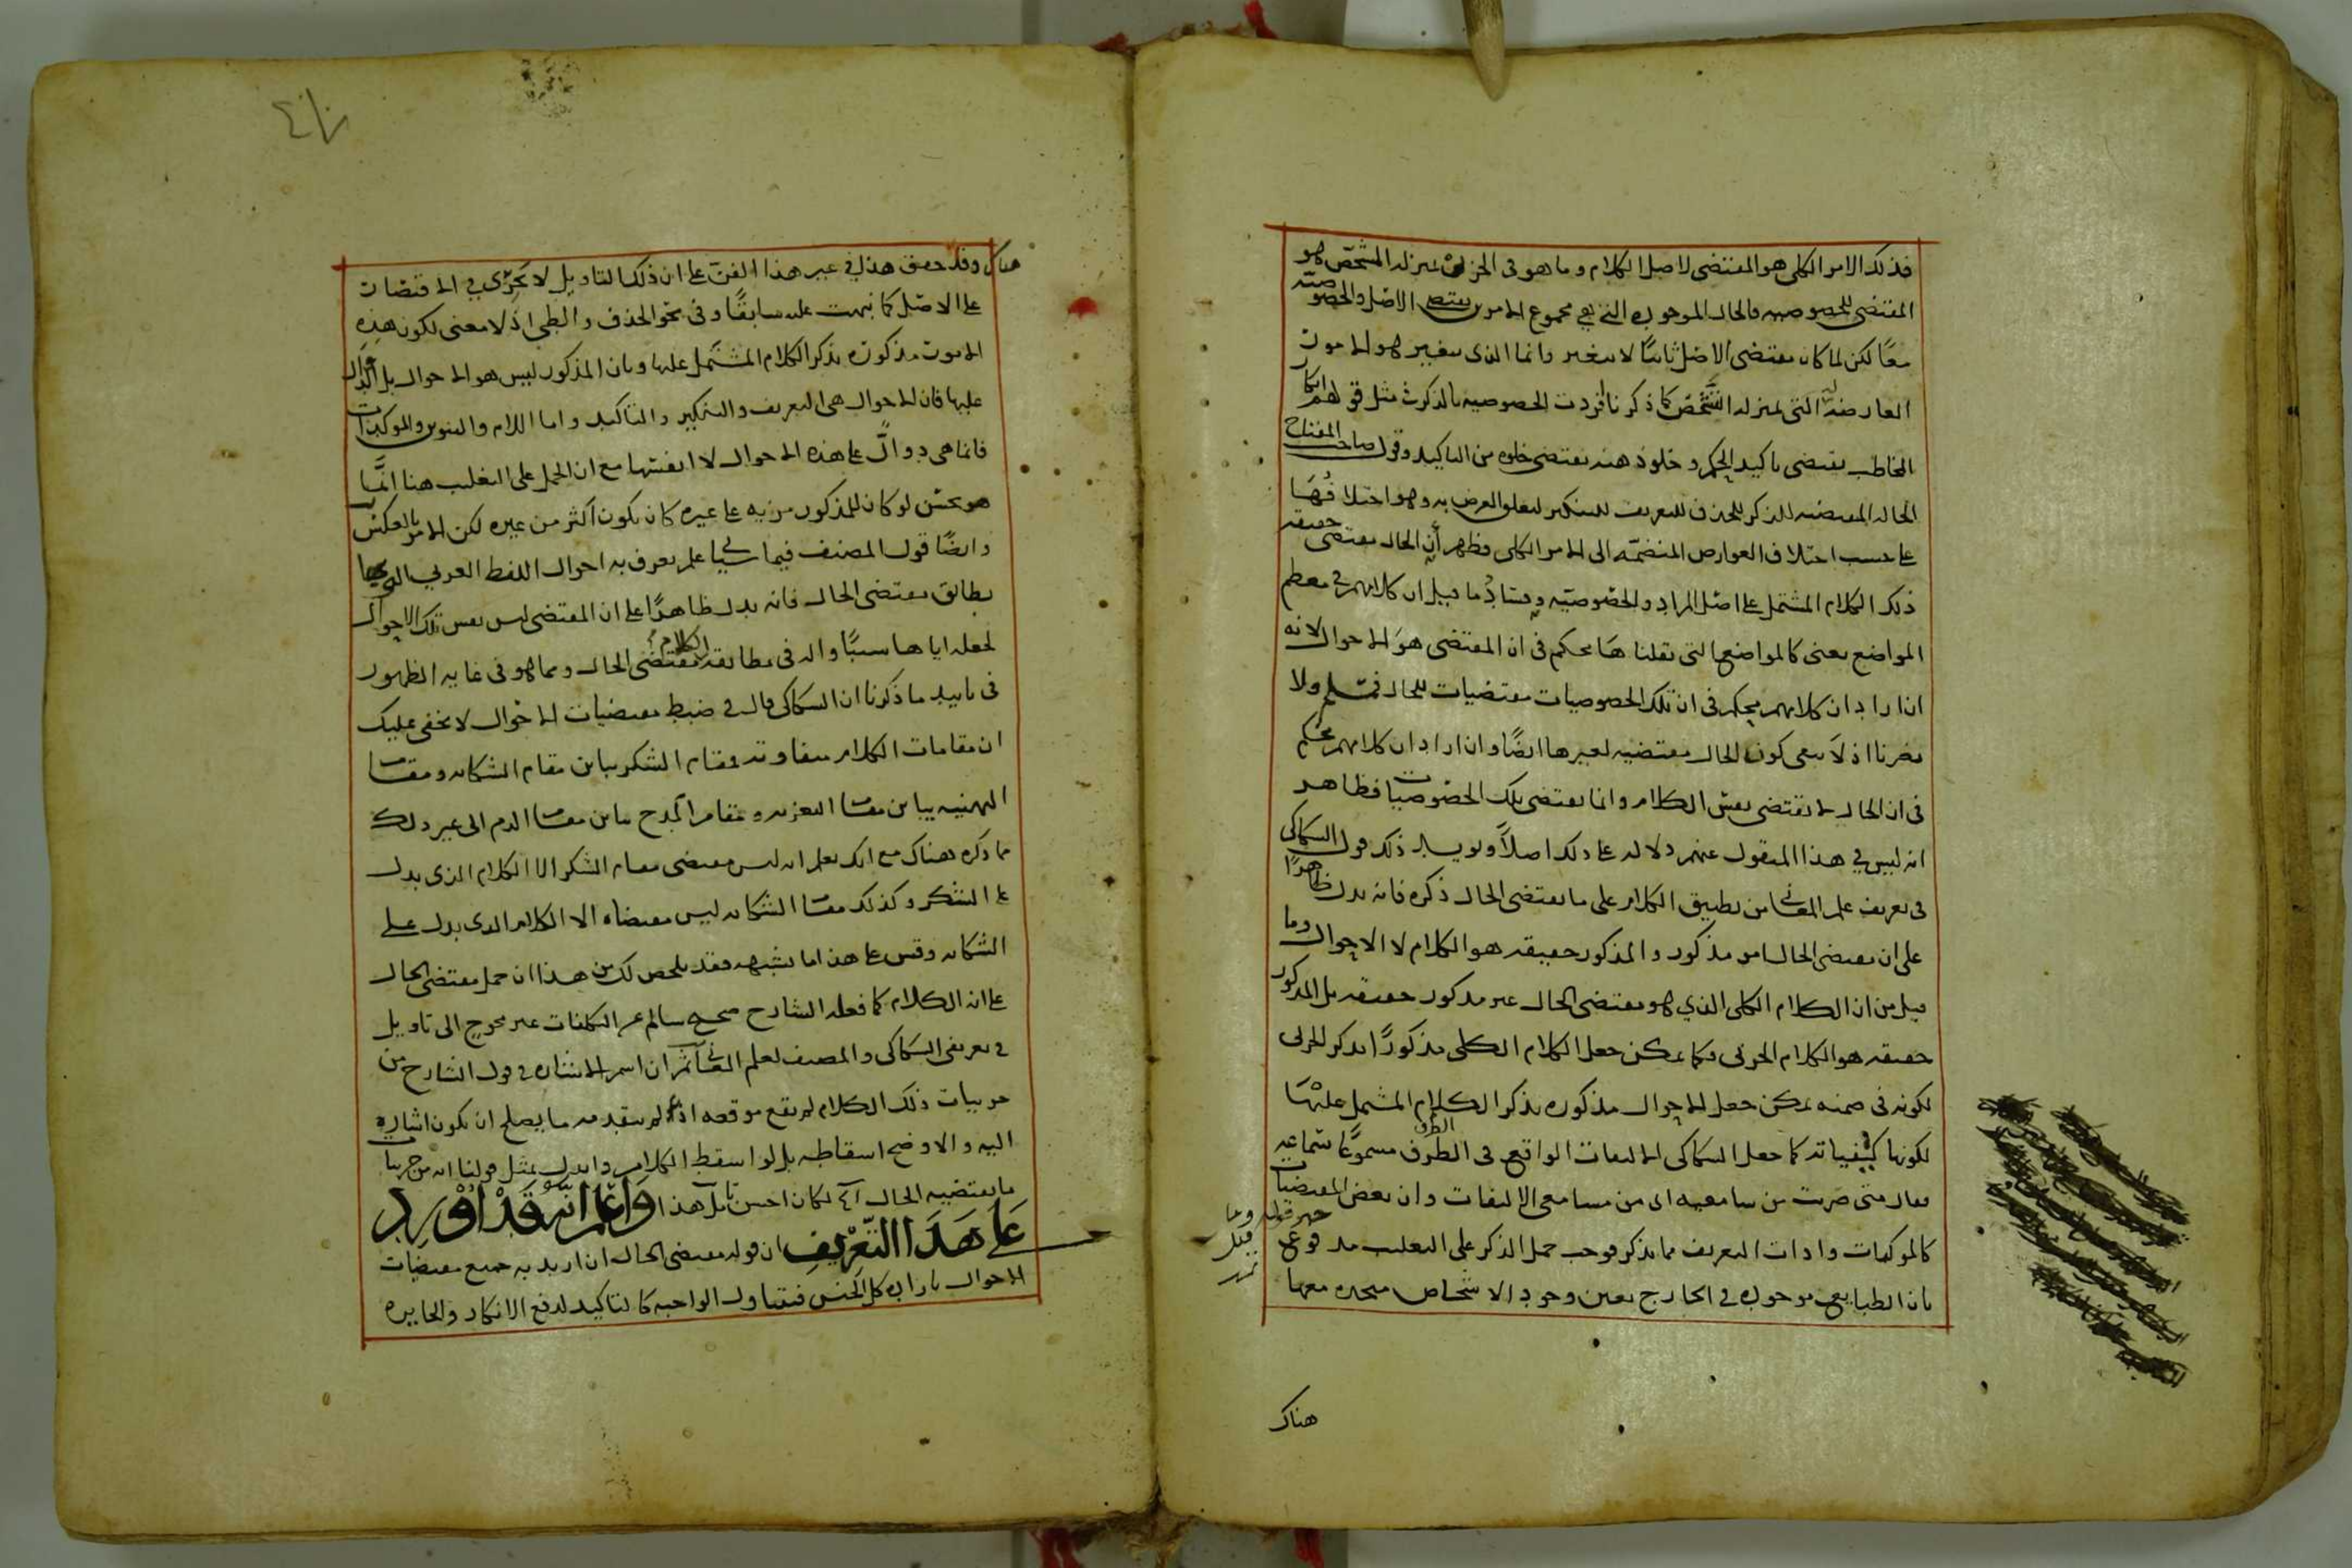 فذلك الامر الكلى هو المقتضى لاصل الكلام وما هو فى الجزئى بمنزله المشخص هو
المقتضى للخصوصيه فالحال الموجوده التى هى مجموع الامرين يقتضى الاصل والخصوصية
معًا لكن لما كان مقتضى الاصل ثابتًا لا يتغير وانما الذى يتغير هو الامور
العارضة التى بمنزله التشخص كما ذكرنا افردت الخصوصيه بالذكر فى مثل قولهم انكار
المخاطب يقتضى تاكيد الحكم وخلو ذهنه يقتضى خلوه من التاكيد وقول صاحب المفتاح
الحاله المقتضيه للذكر للحذف للتعريف للتنكير لتعلق الغرض به وهو اختلافها
على حسب اختلاف العوارض المنضمّه الى الامر الكلى فظهر أن الحال مقتضى حقيقه
ذلك الكلام المشتمل على اصل المراد والخصوصيّه وفساد ما قيل ان كلامهم فى معظم
المواضع يعنى كالمواضع التى نقلناها محكم فى ان المقتضى هو الاحوال لانه
ان اراد ان كلامهم محكم فى ان تلك الخصوصيات مقتضيات للحال فمسلم ولا
يضرنا اذ لا ينفى كون الحال مقتضيه لغيرها ايضًا وان اراد ان كلامهم محكم
فى ان الحال لا يقتضى نفس الكلام وانما يقتضى تلك الخصوصيات فظاهر
انه ليس فى هذا المنقول عنهم دلاله على ذلك اصلًا ويويد ذلك قول السكاكى
فى تعريف علم المعانى من تطبيق الكلام على ما يقتضى الحال ذكره فانه يدل ظاهرًا
على ان مقتضى الحال امر مذكور والمذكور حقيقه هو الكلام لا الاحوال وما
قيل من ان الكلام الكلى الذي هو مقتضى الحال غير مذكور حقيقه بل المذكور
حقيقه هو الكلام الجزئى فكما يمكن جعل الكلام الكلى مذكورًا بذكر الجزئى
لكونه فى ضمنه يمكن جعل الاحوال مذكوره بذكر الكلام المشتمل عليها
لكونها كيفياته كما جعل السكاكى الالتفات الواقع فى الطرف مسموعًا بسماعه
فقال متى صرت من سامعيه اى من مسامعى الالتفات وان بعض المقتضيات
كالموكدات وادات التعريف مما يذكر فوجب حمل الذكر على التغليب مدفوع
بان الطبايع موجوده فى الخارج بعين وجود الاشخاص متحده معها
خبر قوله وما
قيل
هناك
هناك وقد حقق هذا فى غير هذا الفن على ان ذلك التاويل لا يجرى فى الاقتصار
على الاصل كما نبهت عليه سابقًا وفى نحو الحذف والطى اذ لا معنى لكون هذه
الامور مذكوره بذكر الكلام المشتمل عليها وبان المذكور ليس هو الاحوال بل الدوال
عليها فان الاحوال هى التعريف والتنكير والتاكيد واما اللام والتنوين والموكدات
فانما هى دوالّ على هذه الاحوال لا انفسها مع ان الحمل على التغليب هنا انّما
هو يحسن لو كان للمذكور مزيه على غيره كان يكون اكثر من غيره لكن الامر بالعكس
وايضًا قول المصنف فيما سياتى علم يعرف به احوال اللفظ العربي التى بها
يطابق مقتضى الحال فانه يدل ظاهرًا على ان المقتضى ليس نفس تلك الاحوال
لجعله اياها سببًا واله فى مطابقه الكلام مقتضى الحال ومما هو فى غايه الظهور
فى تاييد ما ذكرنا ان السكاكى قال فى ضبط مقتضيات الاحوال لا يخفى عليك
ان مقامات الكلام متفاوته فمقام الشكر يباين مقام الشكايه ومقام
التهنيه يباين مقام التعزيه ومقام المدح يباين مقام الذم الى غير ذلك
مما ذكره هناك مع انك تعلم انه ليس مقتضى مقام الشكر الا الكلام الذى يدل
على الشكر وكذلك مقام الشكايه ليس مقتضاه الا الكلام الذى يدل على
الشكايه وقس على هذا ما يشبهه فقد تلخص لك من هذا ان حمل مقتضى الحال
على انه الكلام كما فعله الشارح صحيح سالم عن التكلفات غير محوج الى تاويل
فى تعريفى السكاكى والمصنف لعلم المعانى ثم ان اسم الاشاره فى قول الشارح من
جزييات ذلك الكلام لم يقع موقعه اذ لم يتقدمه ما يصلح ان يكون اشارة
اليه والاوضح اسقاطه بل لو اسقط الكلام وابدل بمثل قولنا انه من جزييات
ما يقتضيه الحال لكان احسن تامل هذا واعلم انه قد اورد
على هذا التعريف ان قوله مقتضى الحال ان اريد به جميع مقتضيات
الاحوال بارادة كل الجنس فيتناول الواجبه كالتاكيد لدفع الانكار والجايزه